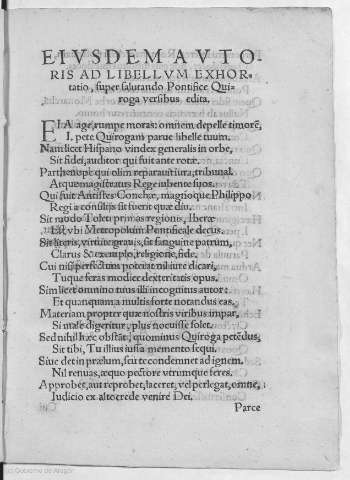 EIVSDEM AVTO-
RIS AD LIBELLVM EXHOR-
tatio, super salutando Pontifice Qui-
roga versibus edita.
EIA age, rumpe moras: omnem depelle timorē,
I, pete Quirogam parue libelle tuum.
Nam licet Hispano vindex generalis in orbe,
Sit fidei, auditor qui fuit ante rotæ.
Parthenope qui olim reparauit iura, tribunal.
Atque magistratus Rege iubente suos.
Qui fuit Antistes Conchæ, magnoque Philippo
Regi a consilijs sit fuerit quæ diu.
Sit modo Toleti primas regionis, Iberæ
Est vbi Metropolum Pontificale decus.
Sit literis, virtute grauis, sit sanguine patrum,
Clarus & exemplo, religione, fide.
Cui nil perfectum poterat nil iure dicari,
Tuque feras modicę dexteritatis opus.
Sim licet omnino tuus illi incognitus autor:
Et quanquam a multis forte notandus eas.
Materiam propter quæ nostris viribus impar,
Si male digeritur, plus nocuisse solet.
Sed nihil hæc obstāt, quominus Quiroga petēdus,
Sit tibi, Tu illius iussa memento sequi.
Siue det in prælum, seu te condemnet ad ignem.
Nil renuas, æquo pectore vtrumque feres.
Approbet, aut reprobet, laceret, vel perlegat, omne,
Iudicio ex alto crede venire Dei.
Parce
Gobierno de Aragón